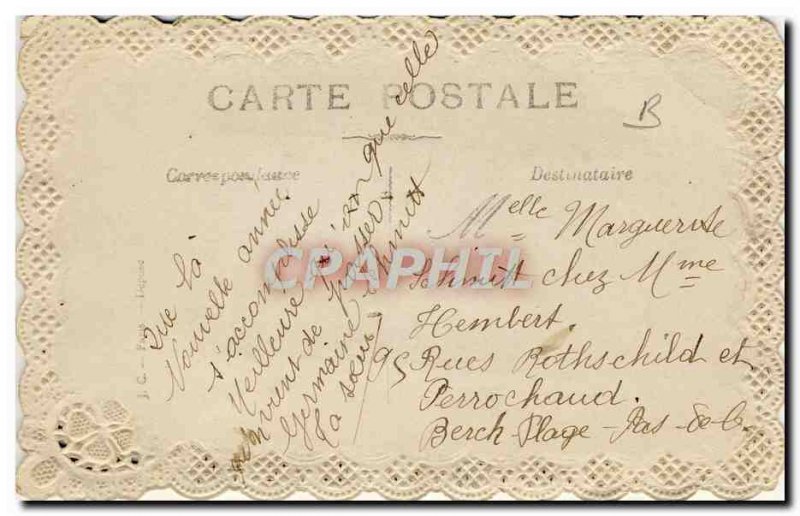 CARTE POSTALE
B
Correspondance
Destinataire
Que la
Nouvelle année
s'accomdesse
Meilleure que celle
vient de passer
Germaine Schmitt
la sœur
Melle Marguerite
Schmitt chez Mme
Hembert.
95 Rues Rothschild et
Perrochaud.
Berch Plage - Pas-de-C.
J. C. - Paris - Déposé
CPAPHIL